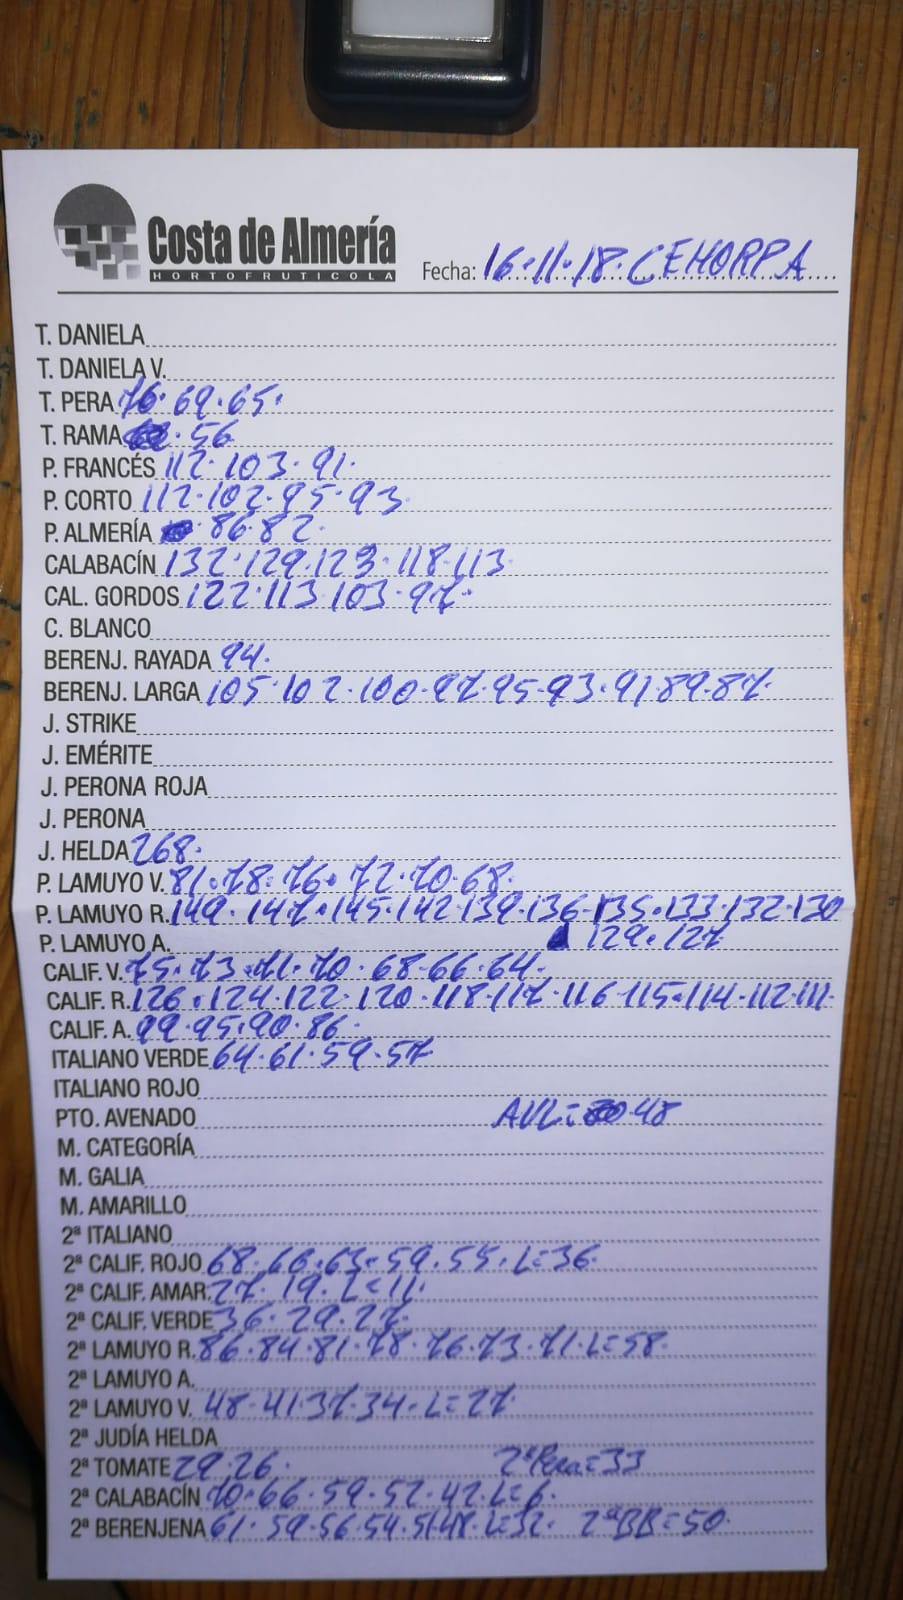 Costa de Almería
HORTOFRUTICOLA
Fecha: 16·11·18·CEHORPA
T. DANIELA
T. DANIELA V.
T. PERA 76·69·65·
T. RAMA ·56
P. FRANCÉS 112·103·91·
P. CORTO 112·102·95·93
P. ALMERÍA ·86·82·
CALABACÍN 132·129·123·118·113
CAL. GORDOS 122·113·103·97·
C. BLANCO
BERENJ. RAYADA 94·
BERENJ. LARGA 105·102·100·97·95·93·91·89·87·
J. STRIKE
J. EMÉRITE
J. PERONA ROJA
J. PERONA
J. HELDA 268·
P. LAMUYO V. 81·78·76·72·70·68·
P. LAMUYO R. 149·147·145·142·139·136·135·133·132·130
P. LAMUYO A. 129·127
CALIF. V. 75·73·71·70·68·66·64·
CALIF. R. 126·124·122·120·118·117·116·115·114·112·111·
CALIF. A. 99·95·90·86·
ITALIANO VERDE 64·61·59·57
ITALIANO ROJO
PTO. AVENADO AVL= ·48
M. CATEGORÍA
M. GALIA
M. AMARILLO
2ª ITALIANO
2ª CALIF. ROJO 68·66·63·59·55·L=36
2ª CALIF. AMAR. 27·19·L=11·
2ª CALIF. VERDE 36·29·27·
2ª LAMUYO R. 86·84·81·78·76·73·71·L=58·
2ª LAMUYO A.
2ª LAMUYO V. 48·41·37·34·L=27·
2ª JUDÍA HELDA
2ª TOMATE 29·26· 2ªPera=33
2ª CALABACÍN 70·66·59·52·42·L=6·
2ª BERENJENA 61·59·56·54·51·48·L=32· 2ªBB=50·